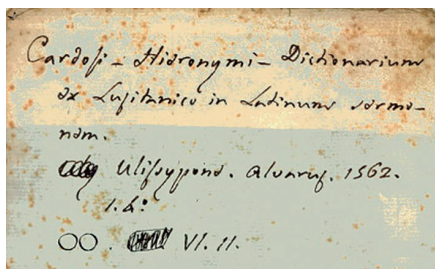 Cardosi – Hieronymi – Dictionarium
ex Lusitanico in Latinum sermo–
nem.
Ulissypone. Alvaruſ. 1562.
1. 4º
OO. VI. 11.